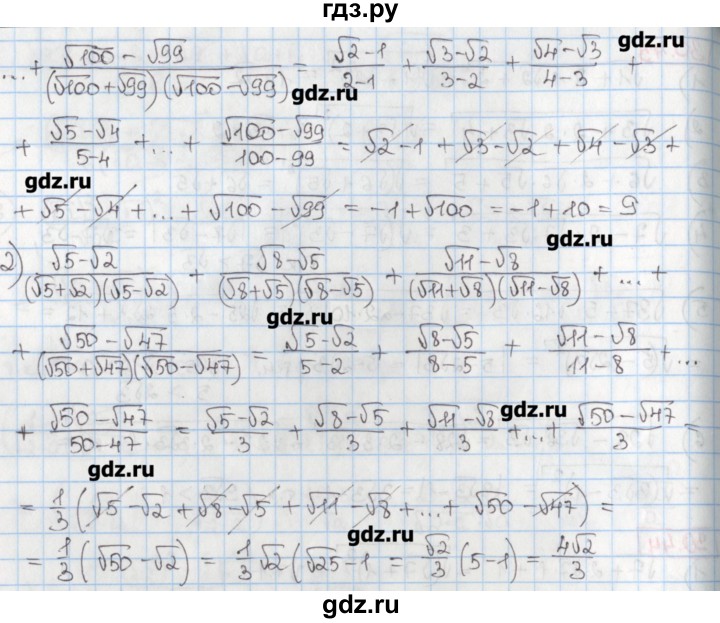 гдз.ру
...+ (√100 - √99)/((√100+√99)(√100-√99)) = (√2-1)/(2-1) + (√3-√2)/(3-2) + (√4-√3)/(4-3) +
gdz.ru
gdz.ru
+ (√5-√4)/(5-4) +...+ (√100-√99)/(100-99) = √2-1+√3-√2+√4-√3+
gdz.ru
+√5-√4+...+√100-√99 = -1+√100 = -1+10 = 9
gdz.ru
2) (√5-√2)/((√5+√2)(√5-√2)) + (√8-√5)/((√8+√5)(√8-√5)) + (√11-√8)/((√11+√8)(√11-√8)) +...+
gdz.ru
+ (√50-√47)/((√50+√47)(√50-√47)) = (√5-√2)/(5-2) + (√8-√5)/(8-5) + (√11-√8)/(11-8) +...
gdz.ru
+ (√50-√47)/(50-47) = (√5-√2)/3 + (√8-√5)/3 + (√11-√8)/3 +...+ (√50-√47)/3 =
gdz.ru
= 1/3(√5-√2+√8-√5+√11-√8+...+√50-√47) =
gdz.ru
= 1/3(√50-√2) = 1/3√2(√25-1 = √2/3(5-1) = 4√2/3
gdz.ru